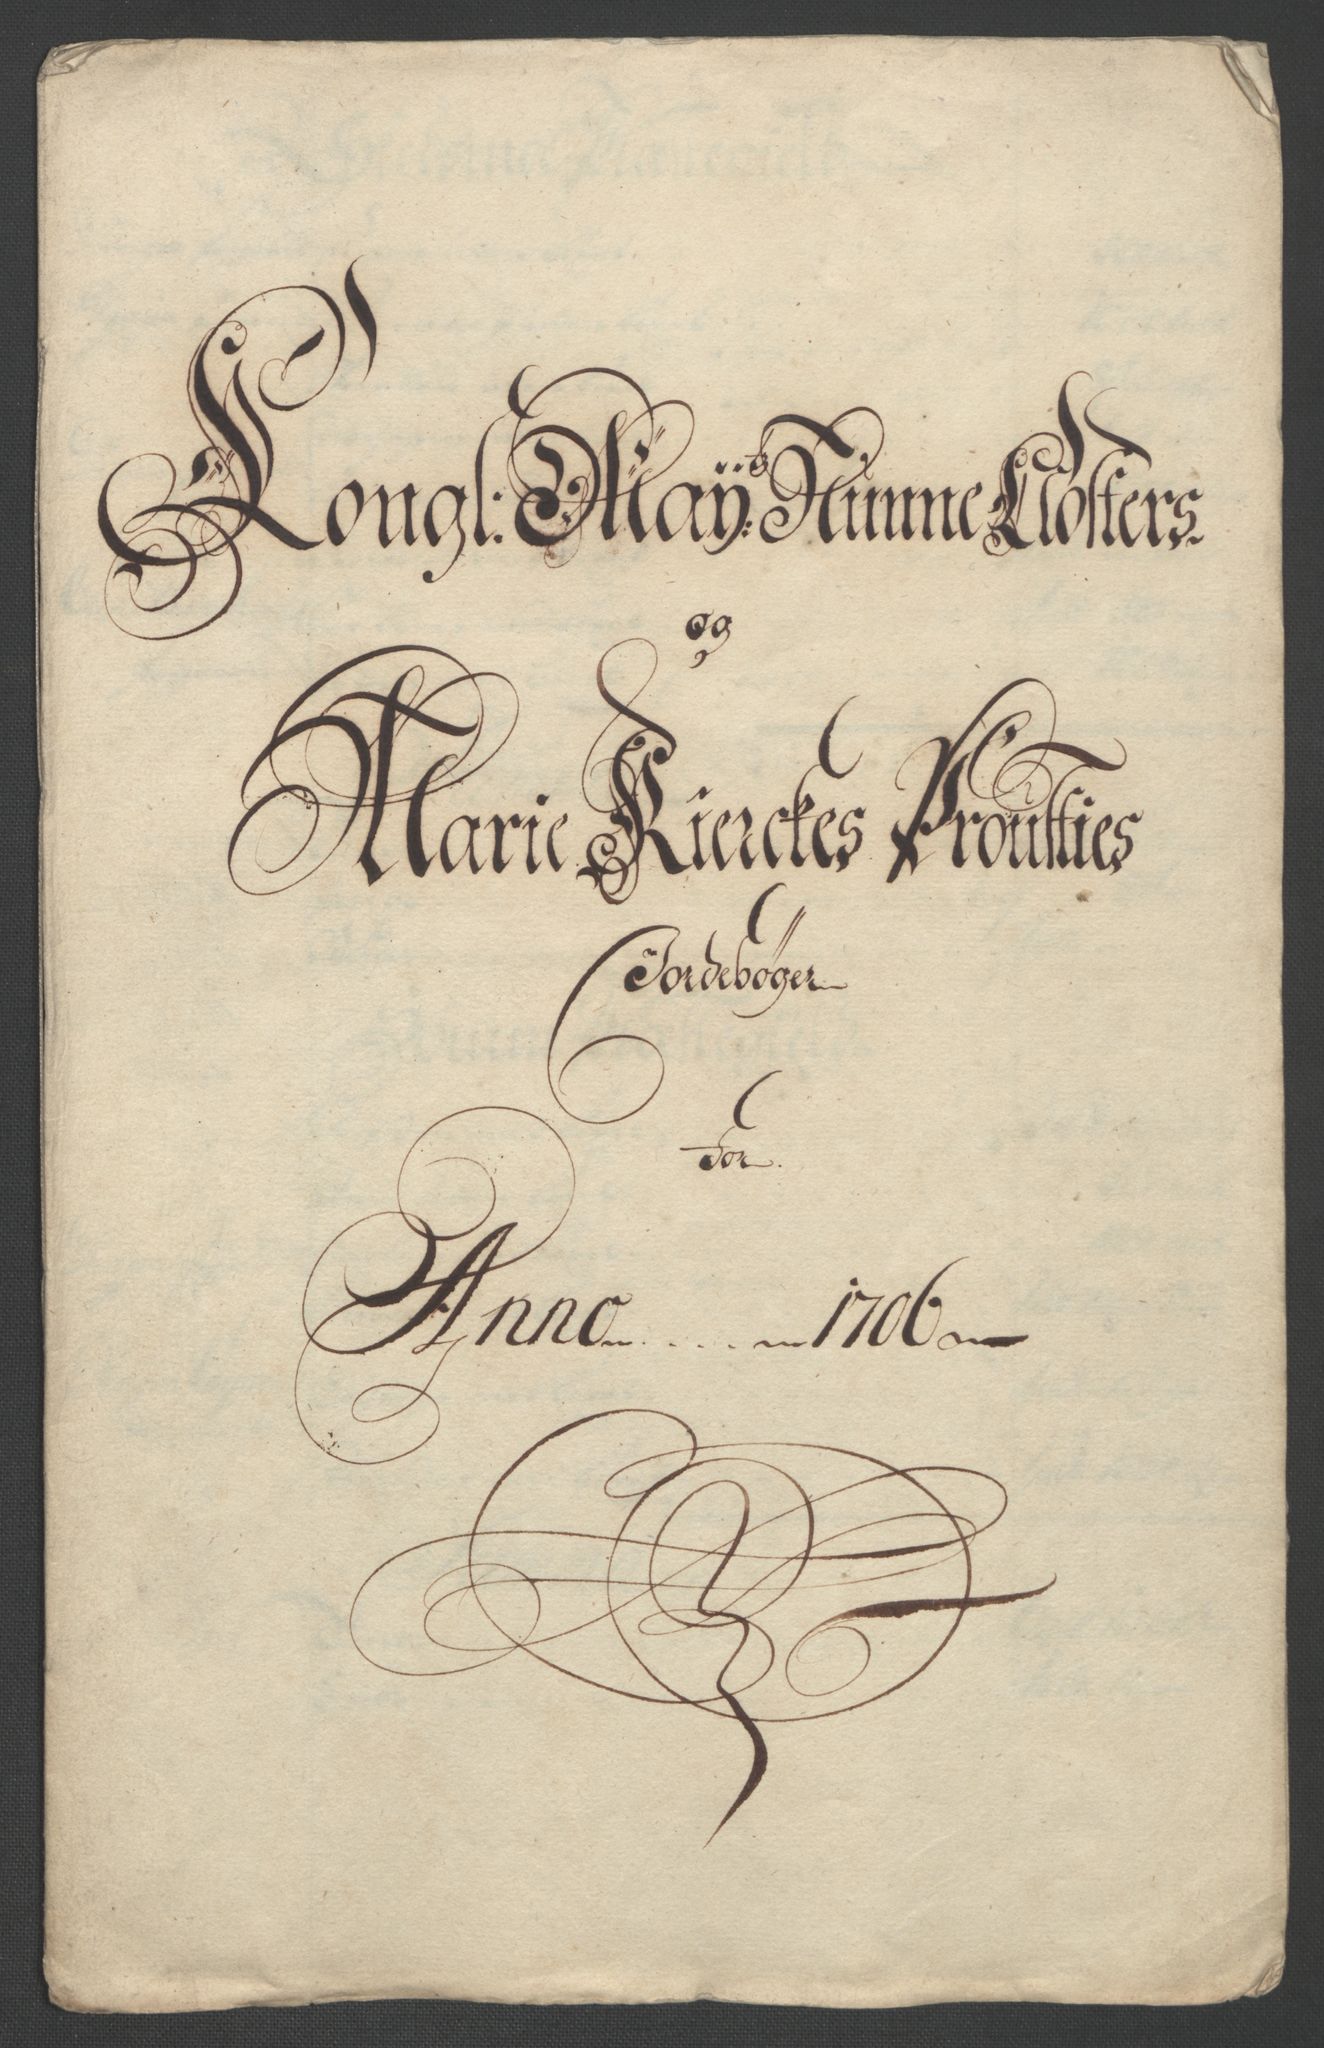 Kongl: May:ts Nunne Closters
og
Marie Kierckes Prousties
Jordebøger
For
Anno 1706